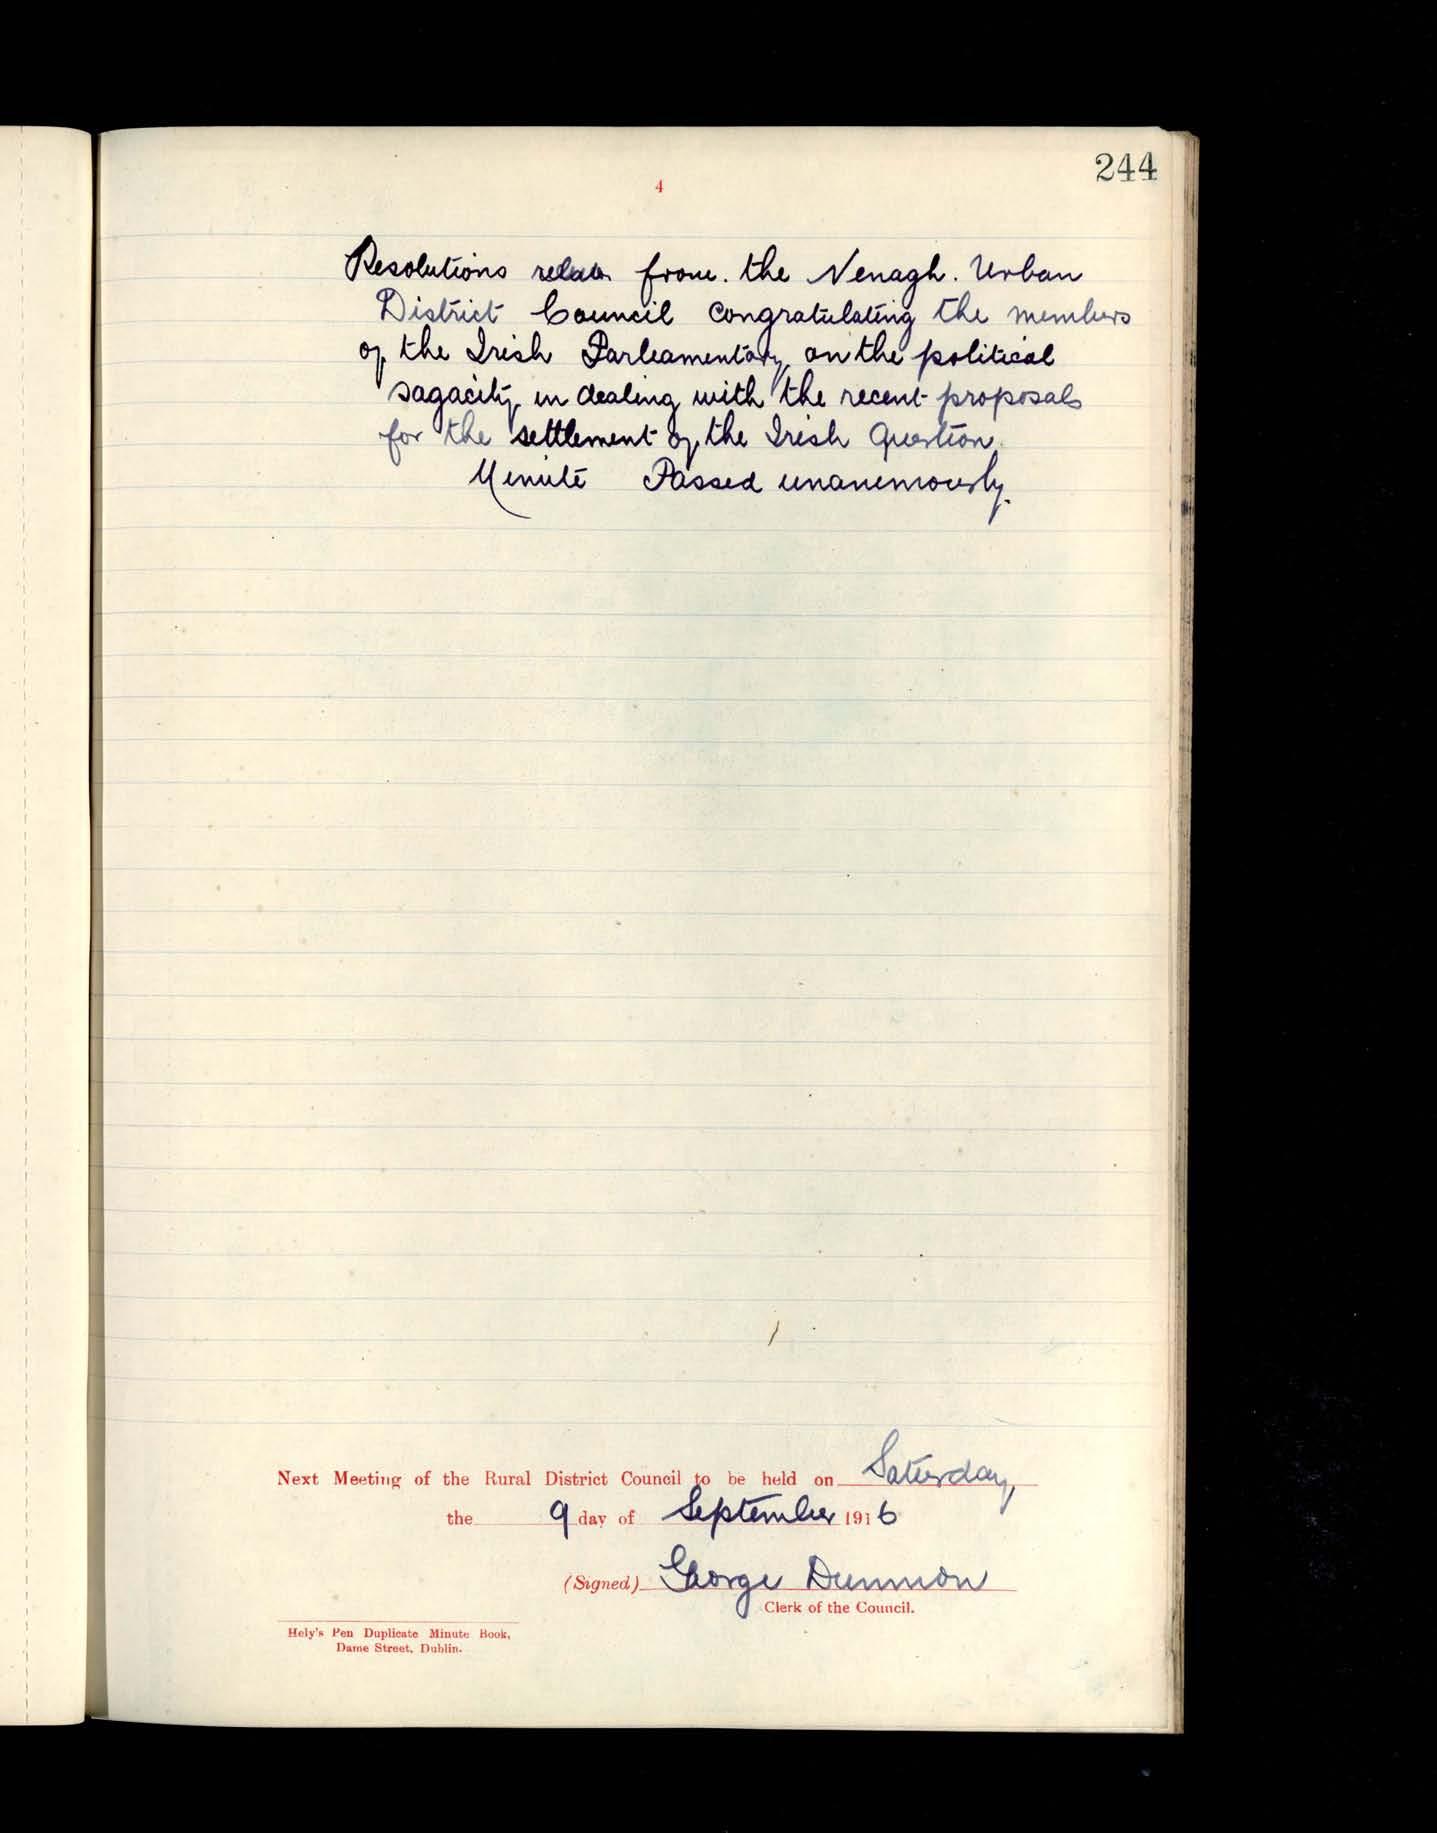 244
4
Resolutions from. the Nenagh. Urban
District Council congratulating the members
of the Irish Parliamentary on the political
sagacity in dealing with the recent proposals
for the settlement of the Irish Question.
Minute Passed unanimously.
Next Meeting of the Rural District Council to be held on Saturday,
the 9 day of September 1916
(Signed) George Dunmon
Clerk of the Council.
Hely's Pen Duplicate Minute Book,
Dame Street, Dublin.